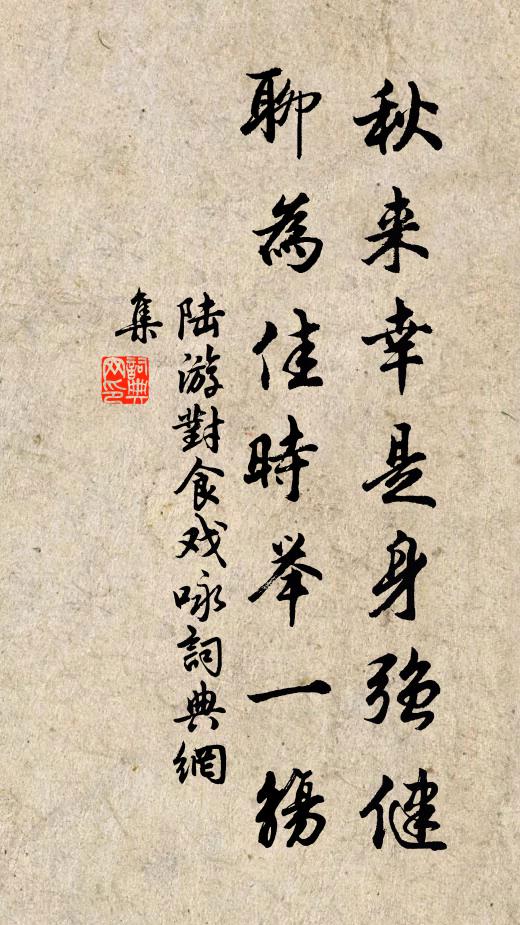 秋来幸是身强健
聊為佳時举一觴
陆游對食戏咏詞典網
集
詞典网印